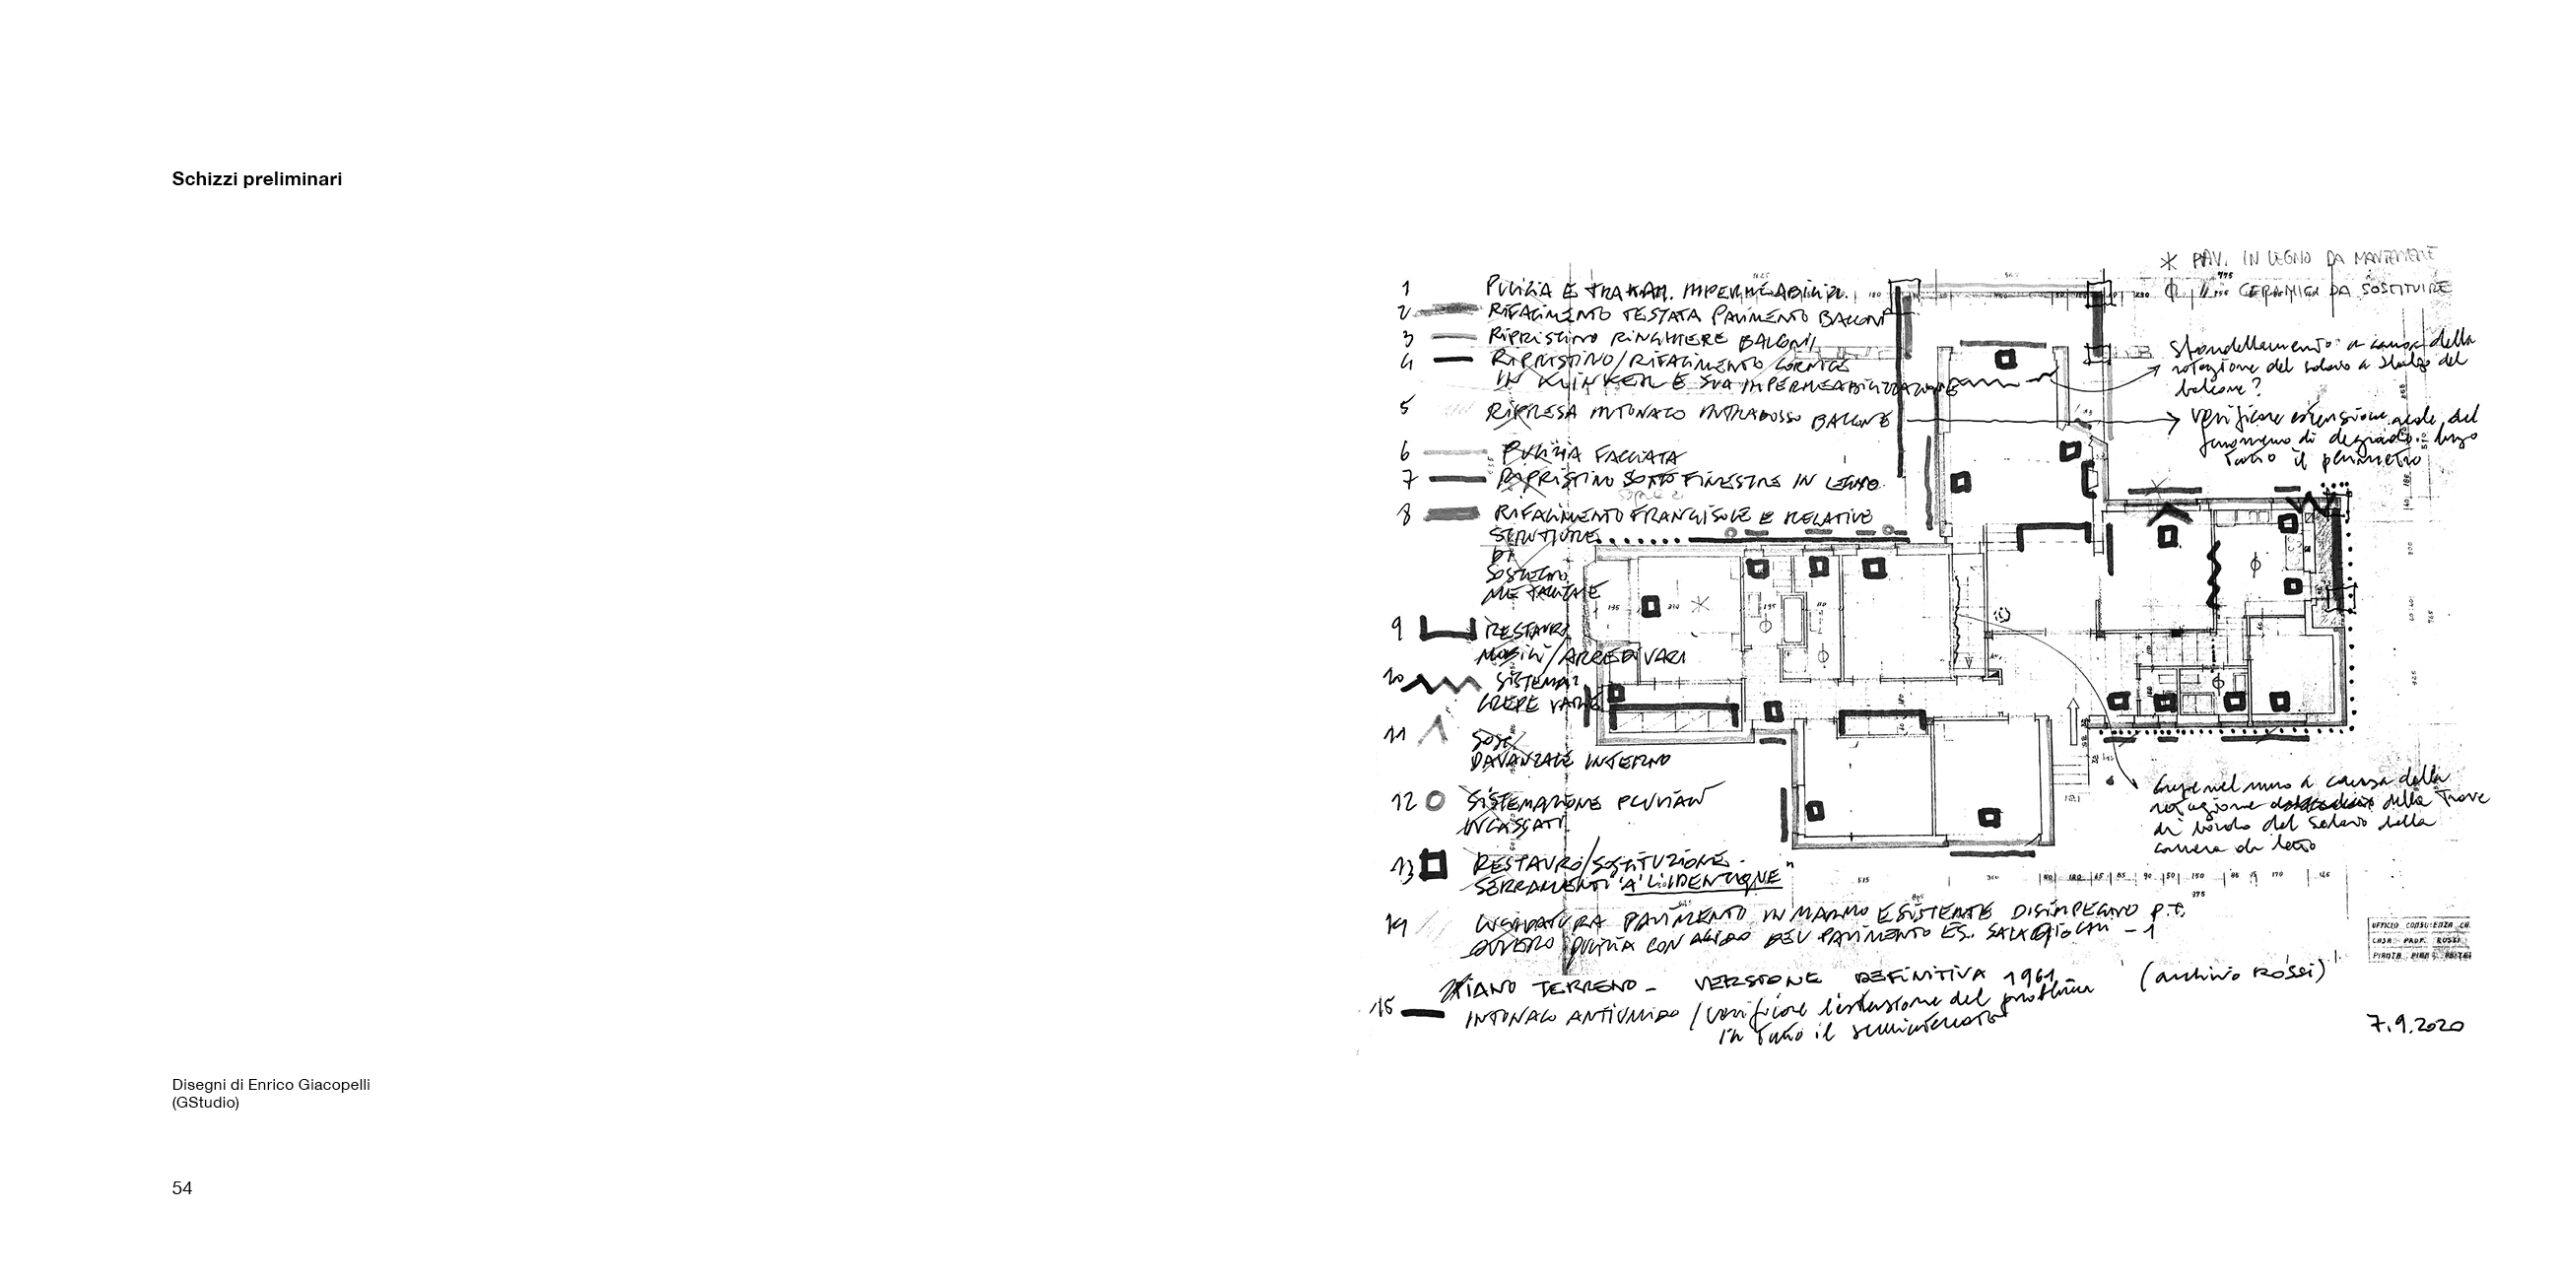 Schizzi preliminari
Disegni di Enrico Giacopelli
(GStudio)
54
* PAV. IN LEGNO DA MANTENERE
ϕ " CERAMICI DA SOSTITUIRE
1 PULIZIA E TRATTAM. IMPERMEABILIZ.
2 RIFACIMENTO TESTATA PAVIMENTO BALCONI
3 RIPRISTINO RINGHIERE BALCONI
4 RIPRISTINO/RIFACIMENTO CORNICE
IN KLINKER E SUA IMPERMEABILIZZAZIONE
5 RIPRESA INTONACO INTRADOSSO BALCONE
6 PULIZIA FACCIATA
7 RIPRISTINO SOTTOFINESTRE IN LEGNO
8 RIFACIMENTO FRANGISOLE E RELATIVE
STRUTTURE
DI
SOSTEGNO
METALLICHE
9 RESTAURO
MOBILI/ARREDI VARI
10 SISTEMAZ.
CREPE VARIE
11 SOST.
DAVANZALE INTERNO
12 SISTEMAZIONE PLUVIALI
INCASSATI
13 RESTAURO/SOSTITUZIONE
SERRAMENTI "A L'IDENTIQUE"
14 LUCIDATURA PAVIMENTO IN MARMO ESISTENTE DISIMPEGNO P.T.
OVVERO PULIZIA CON ACIDO DEL PAVIMENTO ES. SALA GIOCHI -1
PIANO TERRENO - VERSIONE DEFINITIVA 1961 (archivio Rossi)
15 INTONACO ANTIUMIDO / verificare l'estensione del problema
in tutto il seminterrato
sfondellamento a causa della
rotazione del solaio a sbalzo del
balcone?
verificare estensione del
fenomeno di degrado lungo
tutto il perimetro
crepe nel muro a causa della
rotazione della trave
di bordo del solaio della
camera da letto
UFFICIO CONSULENZA
CASA PROF. ROSSI
PIANTA PIANO
7.9.2020